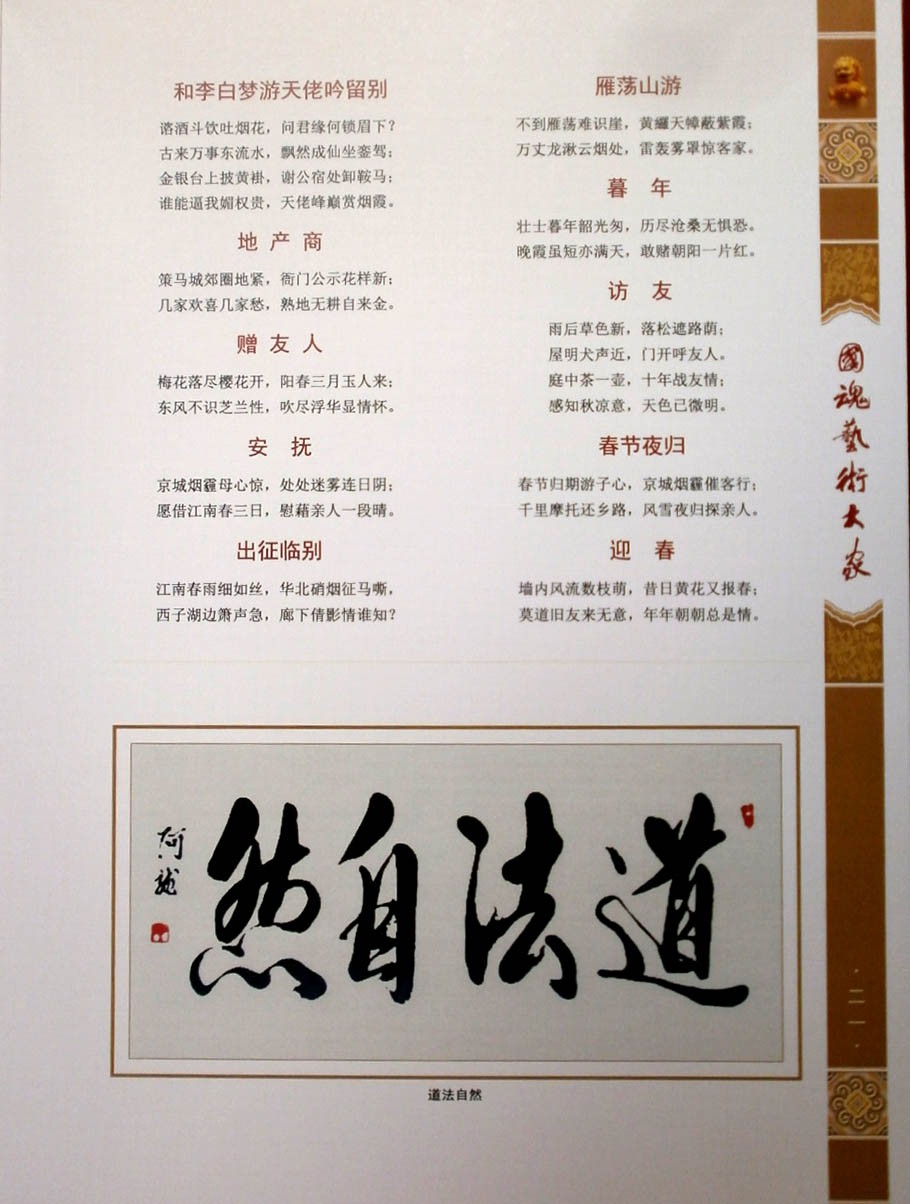 和李白梦游天佬吟留别
谘酒斗饮吐烟花，问君缘何锁眉下？
古来万事东流水，飘然成仙坐銮驾；
金银台上披黄褂，谢公宿处卸鞍马；
谁能逼我媚权贵，天佬峰巅赏烟霞。
地 产 商
策马城郊圈地紧，衙门公示花样新；
几家欢喜几家愁，熟地无耕自来金。
赠 友 人
梅花落尽樱花开，阳春三月玉人来；
东风不识芝兰性，吹尽浮华显情怀。
安 抚
京城烟霾母心惊，处处迷雾连日阴；
愿借江南春三日，慰藉亲人一段晴。
出征临别
江南春雨细如丝，华北硝烟征马嘶，
西子湖边箫声急，廊下倩影情谁知？
雁荡山游
不到雁荡难识崖，黄纙天幛蔽紫霞；
万丈龙湫云烟处，雷轰雾罩惊客家。
暮 年
壮士暮年韶光匆，历尽沧桑无惧恐。
晚霞虽短亦满天，敢赌朝阳一片红。
访 友
雨后草色新，落松遮路荫；
屋明犬声近，门开呼友人。
庭中茶一壶，十年战友情；
感知秋凉意，天色已微明。
春节夜归
春节归期游子心，京城烟霾催客行；
千里摩托还乡路，风雪夜归探亲人。
迎 春
墙内风流数枝萌，昔日黄花又报春；
莫道旧友来无意，年年朝朝总是情。
國魂藝術大家
道法自然
阿龙
道法自然
·二一·